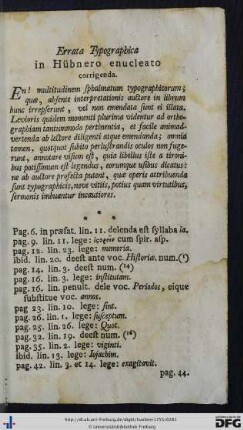 Errata Typographica
in Hübnero enucleato
corrigenda.
En! multitudinem sphalmatum typographicorum;
quæ, absente interpretationis auctore in librum
hunc irrepserunt, vel non emendata sunt ei illata.
Levioris quidem momenti plurima videntur ad orthographiam
tantummodo pertinentia, et facile animadvertenda
ab lectore diligenti atque emendanda; omnia
tamen, quotquot subito perlustrandis oculos non fugerunt,
annotare visum est, quia libellus iste a tironibus
potissimum est legendus, eorumque usibus dicatus:
ne ab auctore profecta putent, quæ operis attribuenda
sunt typographicis, neve vitiis, potius quam virtutibus,
sermonis imbuantur incautiores.
* * *
Pag. 6. in præfat. lin. 11. delenda est syllaba la.
pag. 9. lin. 11. lege: cum spir. asp.
pag. 12. lin. 23. lege: memoria.
ibid. lin. 20. deest ante voc. Historiæ. num. (¹)
pag. 14. lin. 3. deest num. (¹⁴)
pag. 16. lin. 3. lege: institutam.
pag. 16. lin. penult. dele voc. Periodos, eique
substitue voc. annos.
pag. 23. lin. 10. lege: sint.
pag. 26. lin. 1. lege: susceptum.
pag. 25. lin. 26. lege: Quot.
pag. 32. lin. 19. deest num. (¹⁶)
pag. 35. lin. 2. lege: viginti.
ibid. lin. 13. lege: Iojachim.
pag. 42. lin. 3. et 14. lege: exagitavit.
pag. 44.
© Universitätsbibliothek Freiberg
DFG